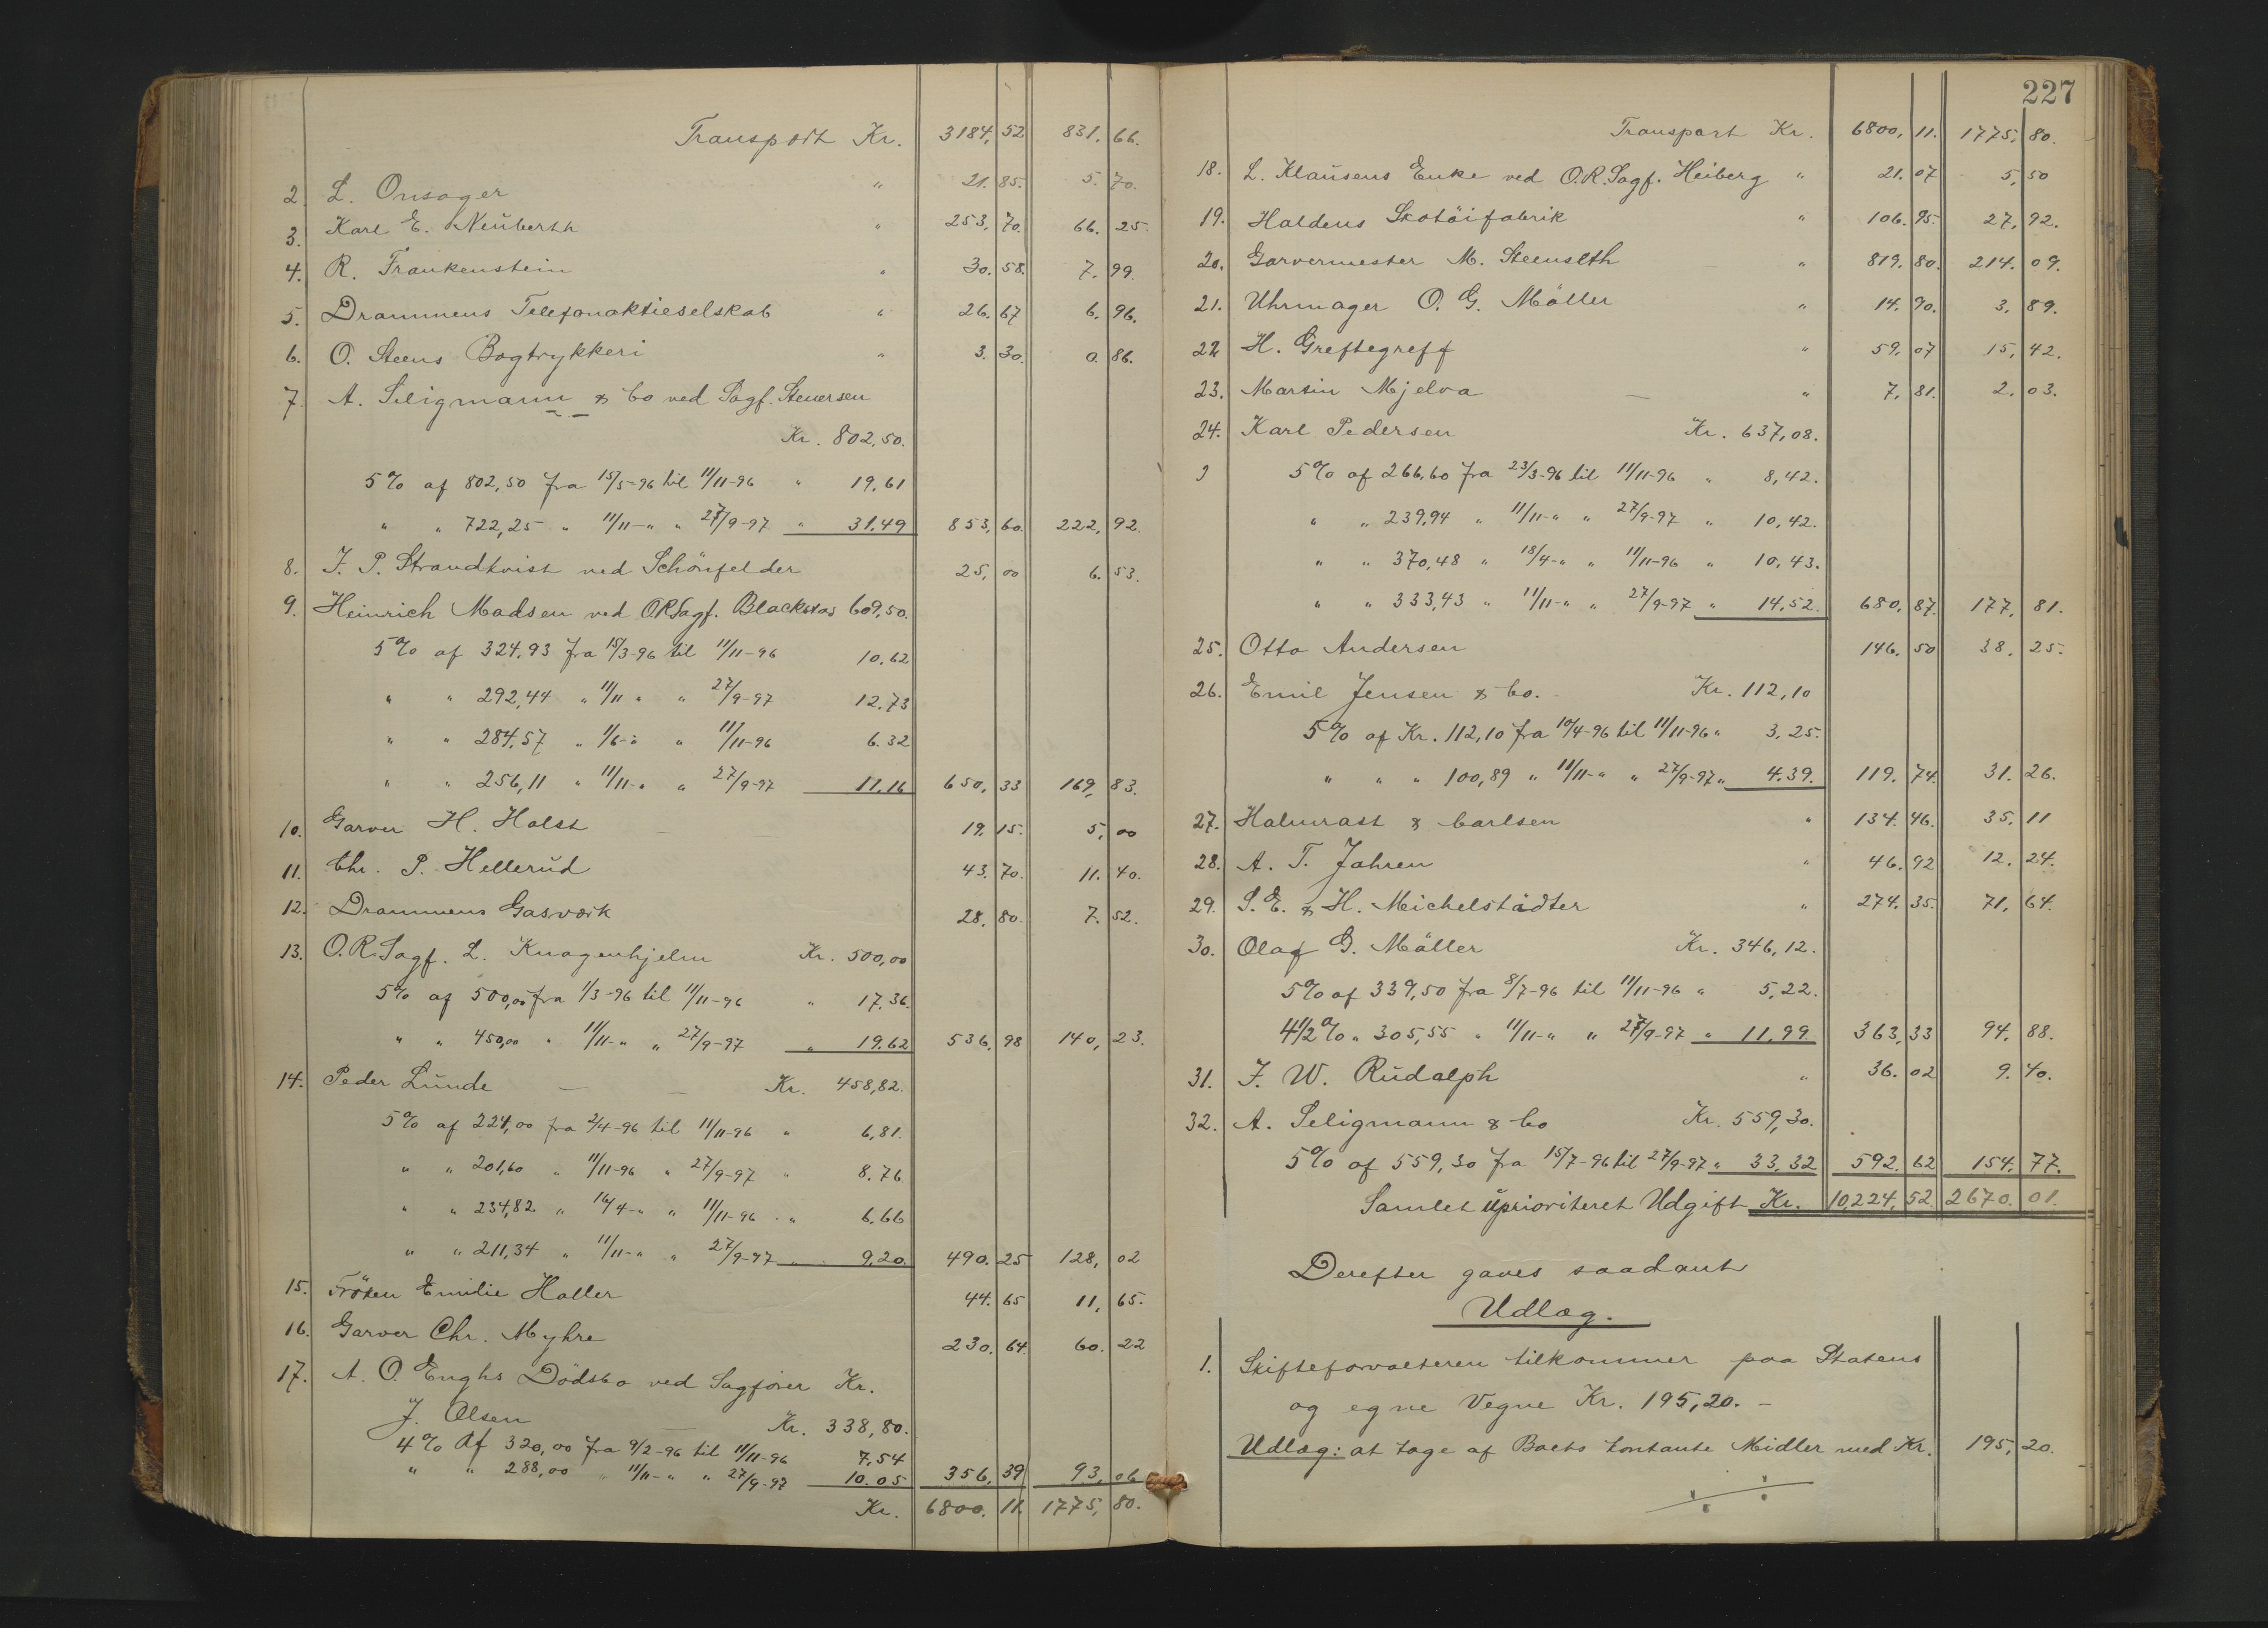 Transport Kr. 3184,52 831,66.
2. L. Onsager " 21.85. 5.70.
3. Karl E. Neuberth " 253,70. 66.25.
4. R. Frankenstein " 30.58. 7.99.
5. Drammens Telefonaktieselskab " 26.67 6.96.
6. O. Steens Bogtrykkeri " 3.30. 0.86.
7. A. Seligmann & Co ved Sagf. Steuersen
Kr. 802,50.
5% af 802,50 fra 15/5-96 til 11/11-96 " 19.61
" " 722,25 " 11/11-" " 27/9-97 " 31.49 853,60. 222,92.
8. J. P. Strandkvist ved Schönfelder 25,00 6.53.
9. Heinrich Madsen ved ORSagf. Blackstas 609,50.
5% af 324,93 fra 15/3-96 til 11/11-96 10.62
" " 292,44 " 11/11 " " 27/9-97 12.73
" " 284,57 " 1/6-" " 11/11-96 6.32
" " 256,11 " 11/11-" " 27/9-97 11.16 650,33 169,83.
10. Garver H. Holst 19,15. 5,00
11. Chr. P. Hellerud 43.70. 11.40.
12. Drammens Gasværk 28.80. 7.52.
13. O.R.Sagf. L. Knagenhjelm Kr. 500,00
5% af 500,00 fra 1/3-96 til 11/11-96 " 17.36.
" " 450,00 " 11/11-" " 27/9-97 " 19.62 536.98 140,23.
14. Peder Lunde Kr. 458,82.
5% af 224,00 fra 2/4-96 til 11/11-96 " 6,81.
" " 201,60 " 11/11-96 " 27/9-97 " 8.76.
" " 234,82 " 16/4-" " 11/11-96 " 6.66
" " 211,34 " 11/11-" " 27/9-97 " 9,20. 490.25 128,02
15. Fröken Emilie Haller 44.65 11,65.
16. Garver Chr. Myhre 230.64. 60.22
17. A. O. Enghs Dödsbo ved Sagförer Kr.
J. Olsen Kr. 338,80.
4% Af 320,00 fra 9/2-96 til 11/11-96 7,54
" " 288,00 " 11/11-" " 27/9-97 10.05 356,39 93,06
Kr. 6800.11. 1775,80.
227
Transport Kr. 6800,11. 1775,80.
18. L. Klausens Enke ved O.R.Sagf. Heiberg " 21.07 5,50
19. Haldens Skotöifabrik " 106.95. 27,92.
20. Garvermester M. Steenseth " 819.80. 214.09.
21. Uhrmager O. G. Möller " 14.90. 3,89.
22 H. Greftegreff " 59.07 15,42.
23. Martin Mjelva " 7,81. 2.03.
24. Karl Pedersen Kr. 637,08.
5% af 266,60 fra 23/3-96 til 11/11-96 " 8,42.
" " 239,94 " 11/11-" " 27/9-97 " 10,42.
" " 370,48 " 18/4-" " 11/11-96 " 10,43.
" " 333,43 " 11/11-" " 27/9-97 " 14,52. 680,87. 177,81.
25. Otto Andersen 146.50 38.25.
26. Emil Jensen & Co. Kr. 112,10
5% af Kr. 112,10 fra 10/4-96 til 11/11-96 " 3.25.
" " " 100,89 " 11/11-" " 27/9-97 " 4.39. 119.74. 31.26.
27. Halmrast & Carlsen " 134.46. 35,11
28. A. T. Jahren " 46.92 12.24.
29. S. E. & H. Michelstädter " 274.35. 71,64.
30. Olaf G. Möller Kr. 346,12.
5% af 339,50 fra 8/7-96 til 11/11-96 " 5,22.
4 1/2% " 305,55 " 11/11-" " 27/9-97 " 11.99. 363,33 94,88.
31. J. W. Rudolph " 36.02 9.40.
32. A. Seligmann & Co Kr. 559,30.
5% af 559,30 fra 15/7-96 til 27/9-97 " 33,32 592.62 154.77.
Samlet uprioriteret Udgift Kr. 10,224,52 2670.01.
Derefter gaves saadant
Udlæg.
1. Skifteforvalteren tilkommer paa Statens
og egne Vegne Kr. 195,20. -
Udlæg: at tage af Boets kontante Midler med Kr. 195,20.